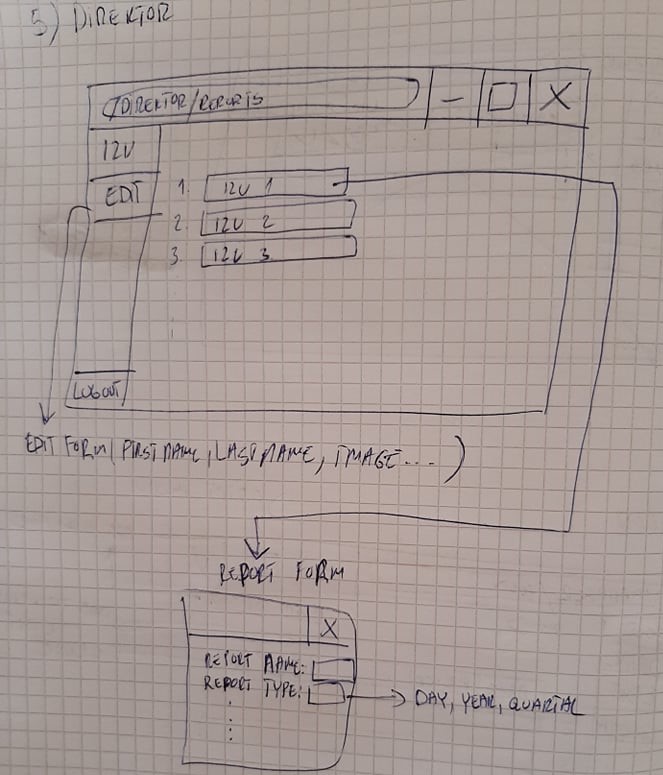 5) DIREKTOR
/DIREKTOR/REPORTS
- □ X
IZV
EDIT
1. IZV 1
2. IZV 2
3. IZV 3
LOGOUT
EDIT FORM (FIRSTNAME, LASTNAME, IMAGE...)
REPORT FORM
X
REPORT NAME:
REPORT TYPE: DAY, YEAR, QUARTAL